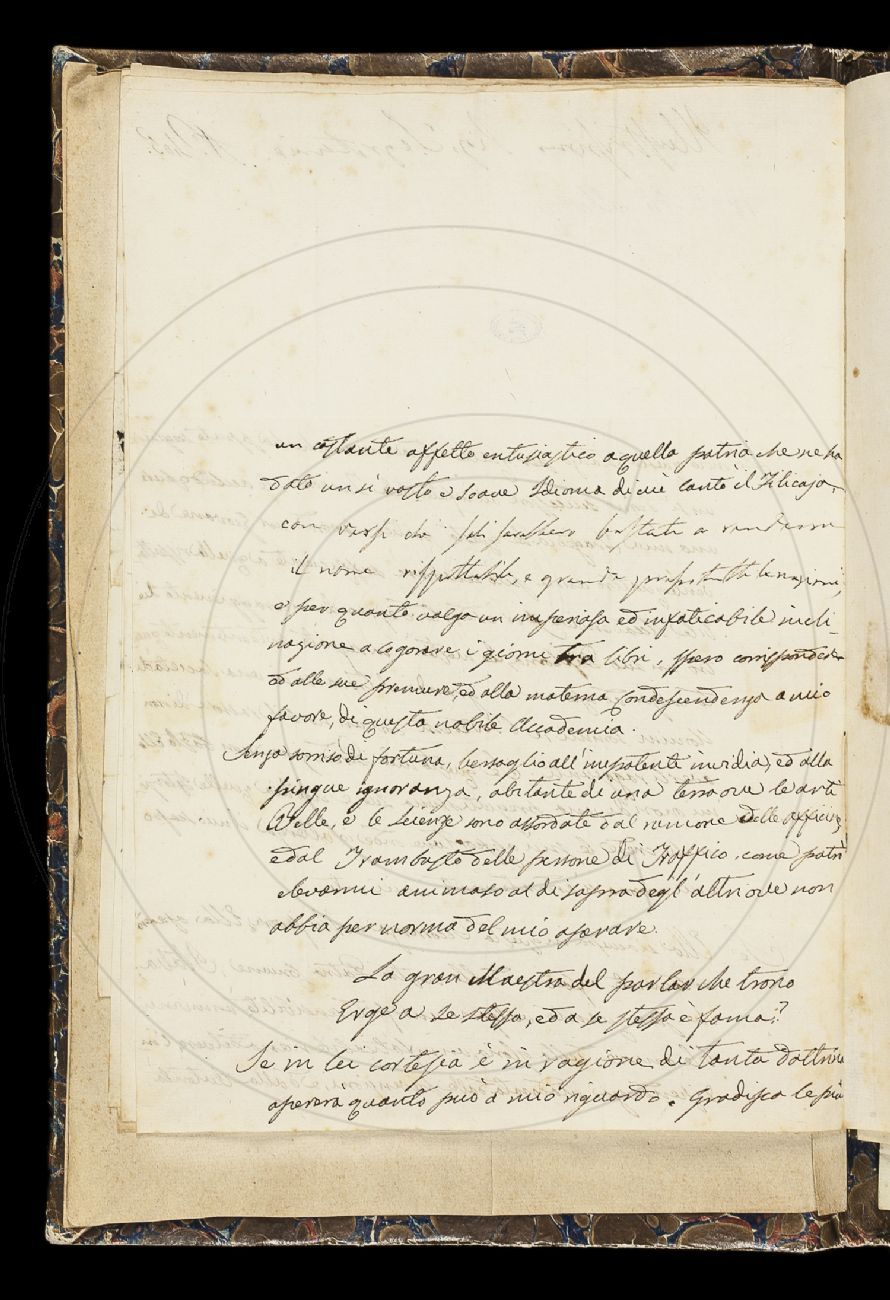 un costante affetto entusiastico a quella patria che ne ha
dato un sì vasto e soave Idioma di cui cantò il Filicaja,
con versi che soli sarebbero bastati a renderne
il nome rispettabile, e grande presso tutte le nazioni,
e per quanto valga un imperiosa ed infaticabile incli-
nazione a logorare i giorni tra libri, spero corrispondere
ed alle sue premure, ed alla materna Condescendenza a mio
favore, di questa nobile Accademia.
Senza sorriso de fortuna, bersaglio all'impotente invidia, ed alla
pingue ignoranza, abitante di una terra ove le arti
Belle, e le scienze sono assordate dal rumore delle officine
ed al Trambusto delle persone di Traffico, come potrò
elevarmi animoso al di sopra degl'altri ove non
abbia per norma del mio operare.
La gran Maestra del parlar che trono
Erge a se stessa, ed a se stessa è fama?
Se in lei cortesia è in ragione di tanta dottrina
opererà quanto può a mio riguardo. Gradisca le più